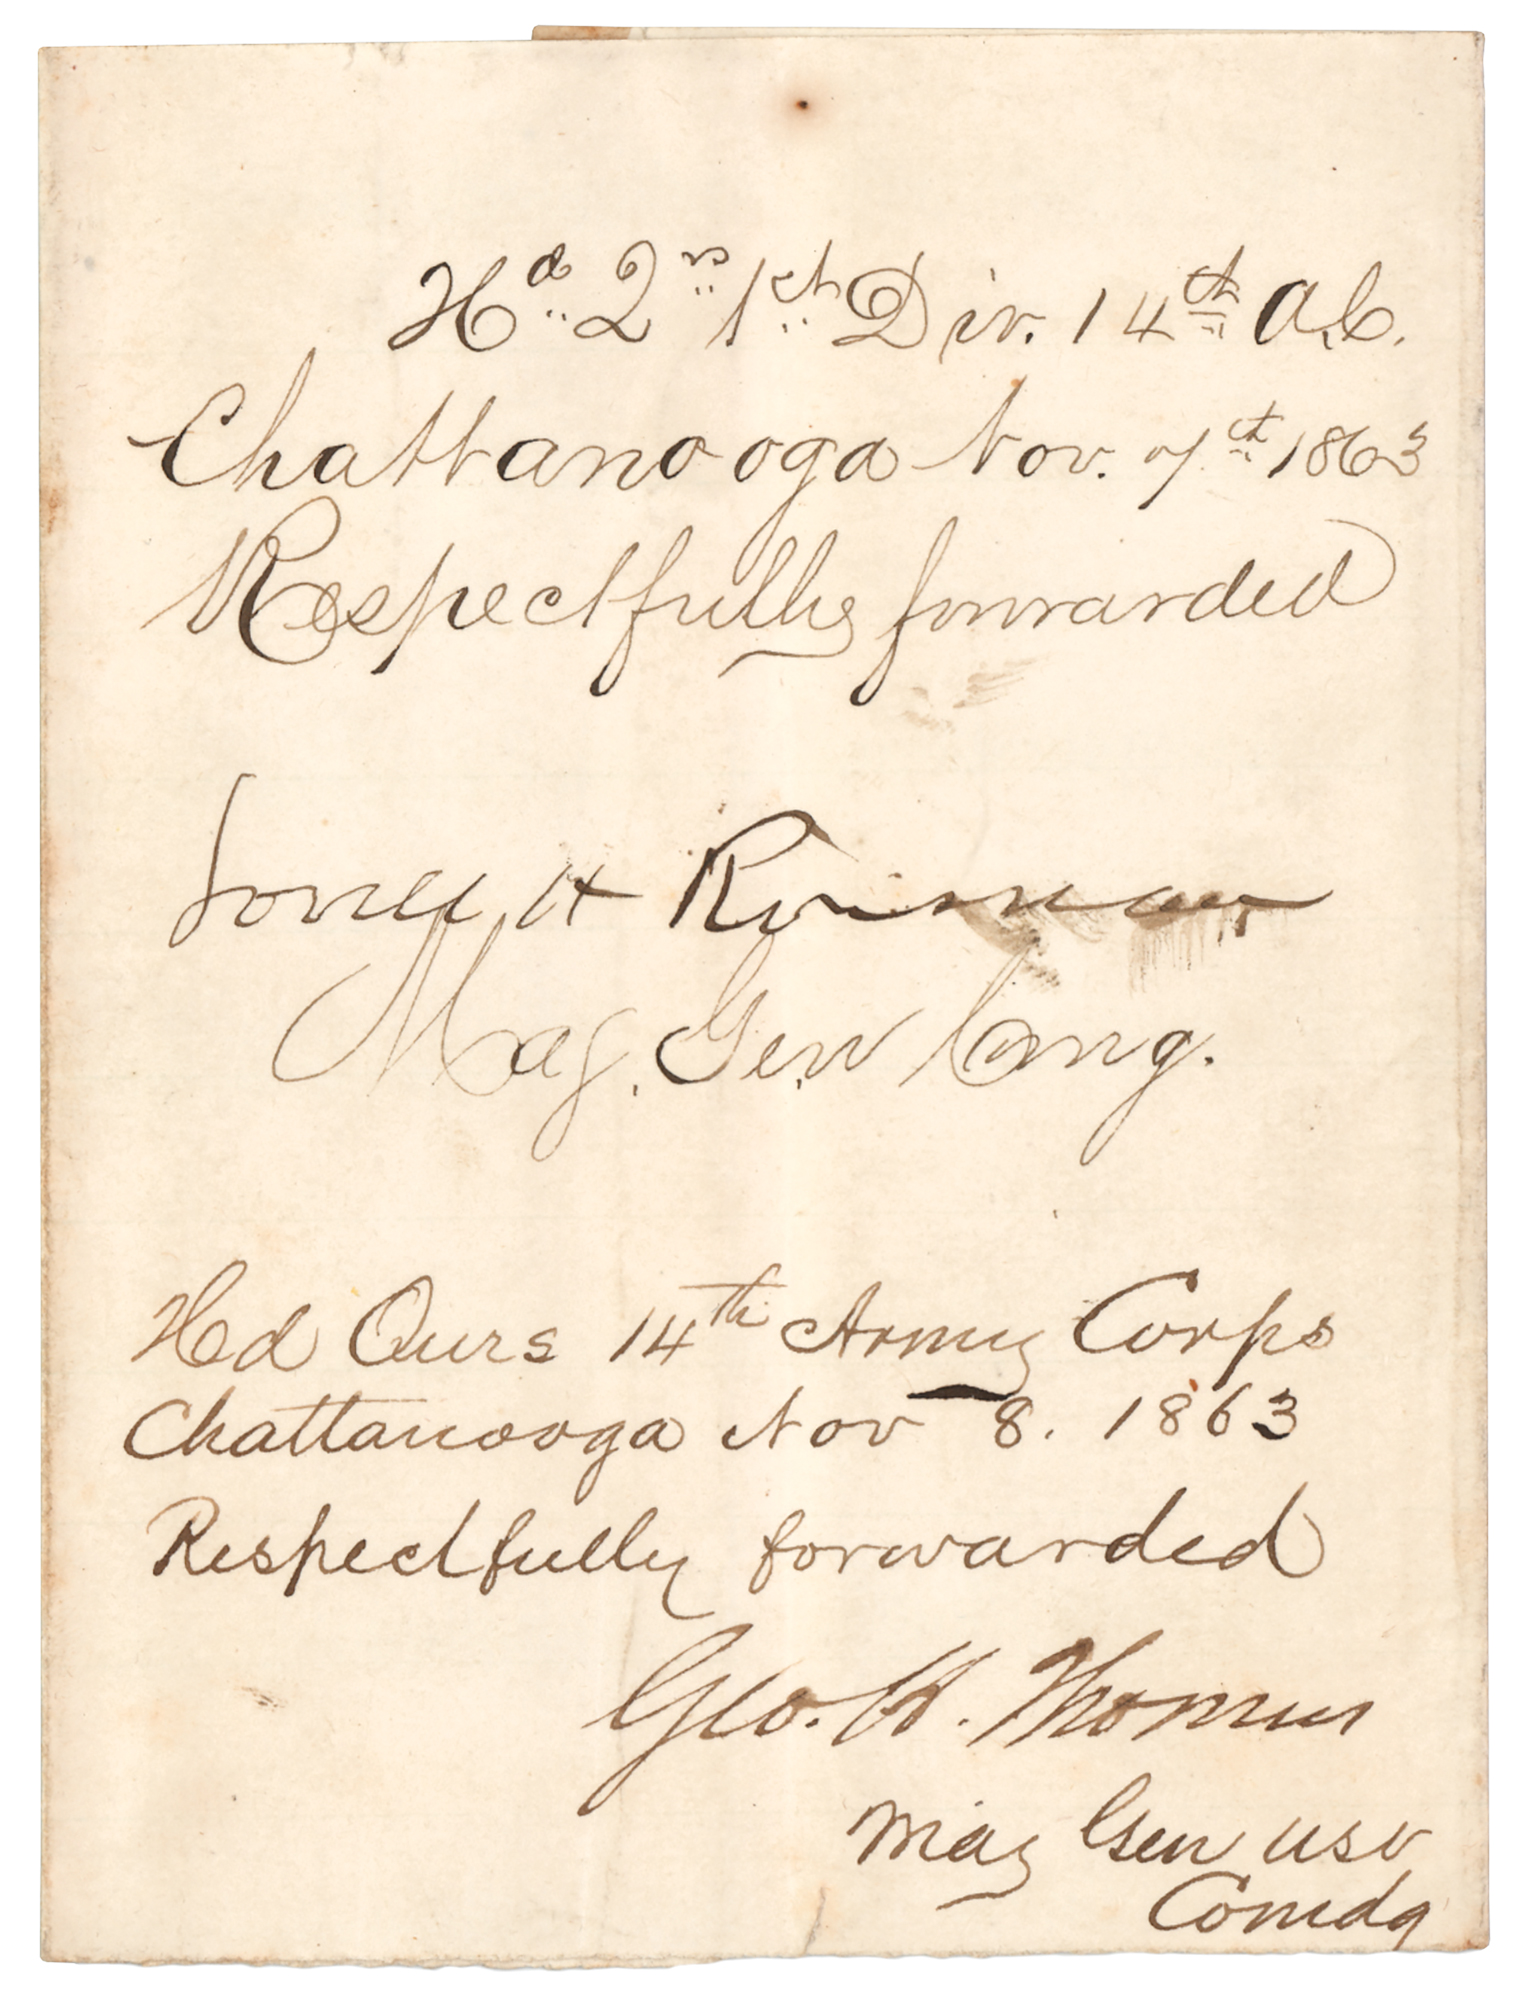 Hd. Qrs 1st Div. 14th A.C.
Chattanooga Nov. 7th 1863
Respectfully forwarded
H R
Maj. Gen Comg.
Hd Qurs 14th Army Corps
Chattanooga Nov 8. 1863
Respectfully forwarded
Geo. H. Thomas
Maj Gen USV
Comdg